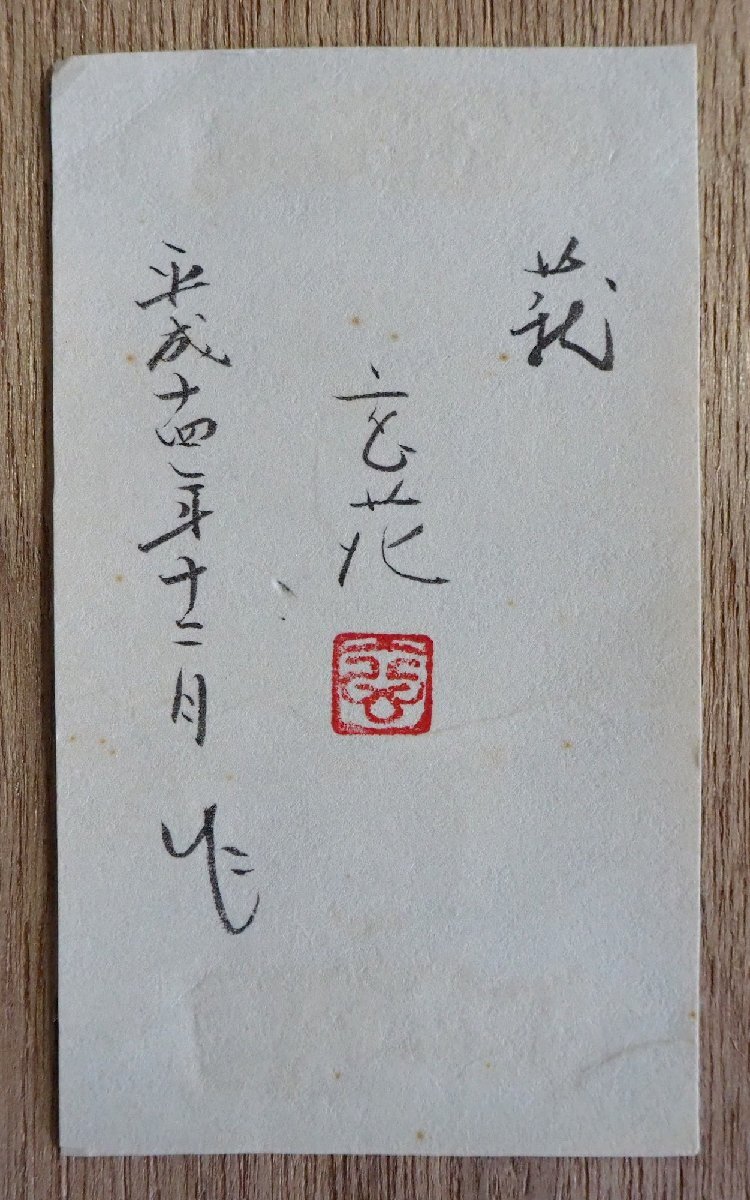 花
平成十四年十二月 作